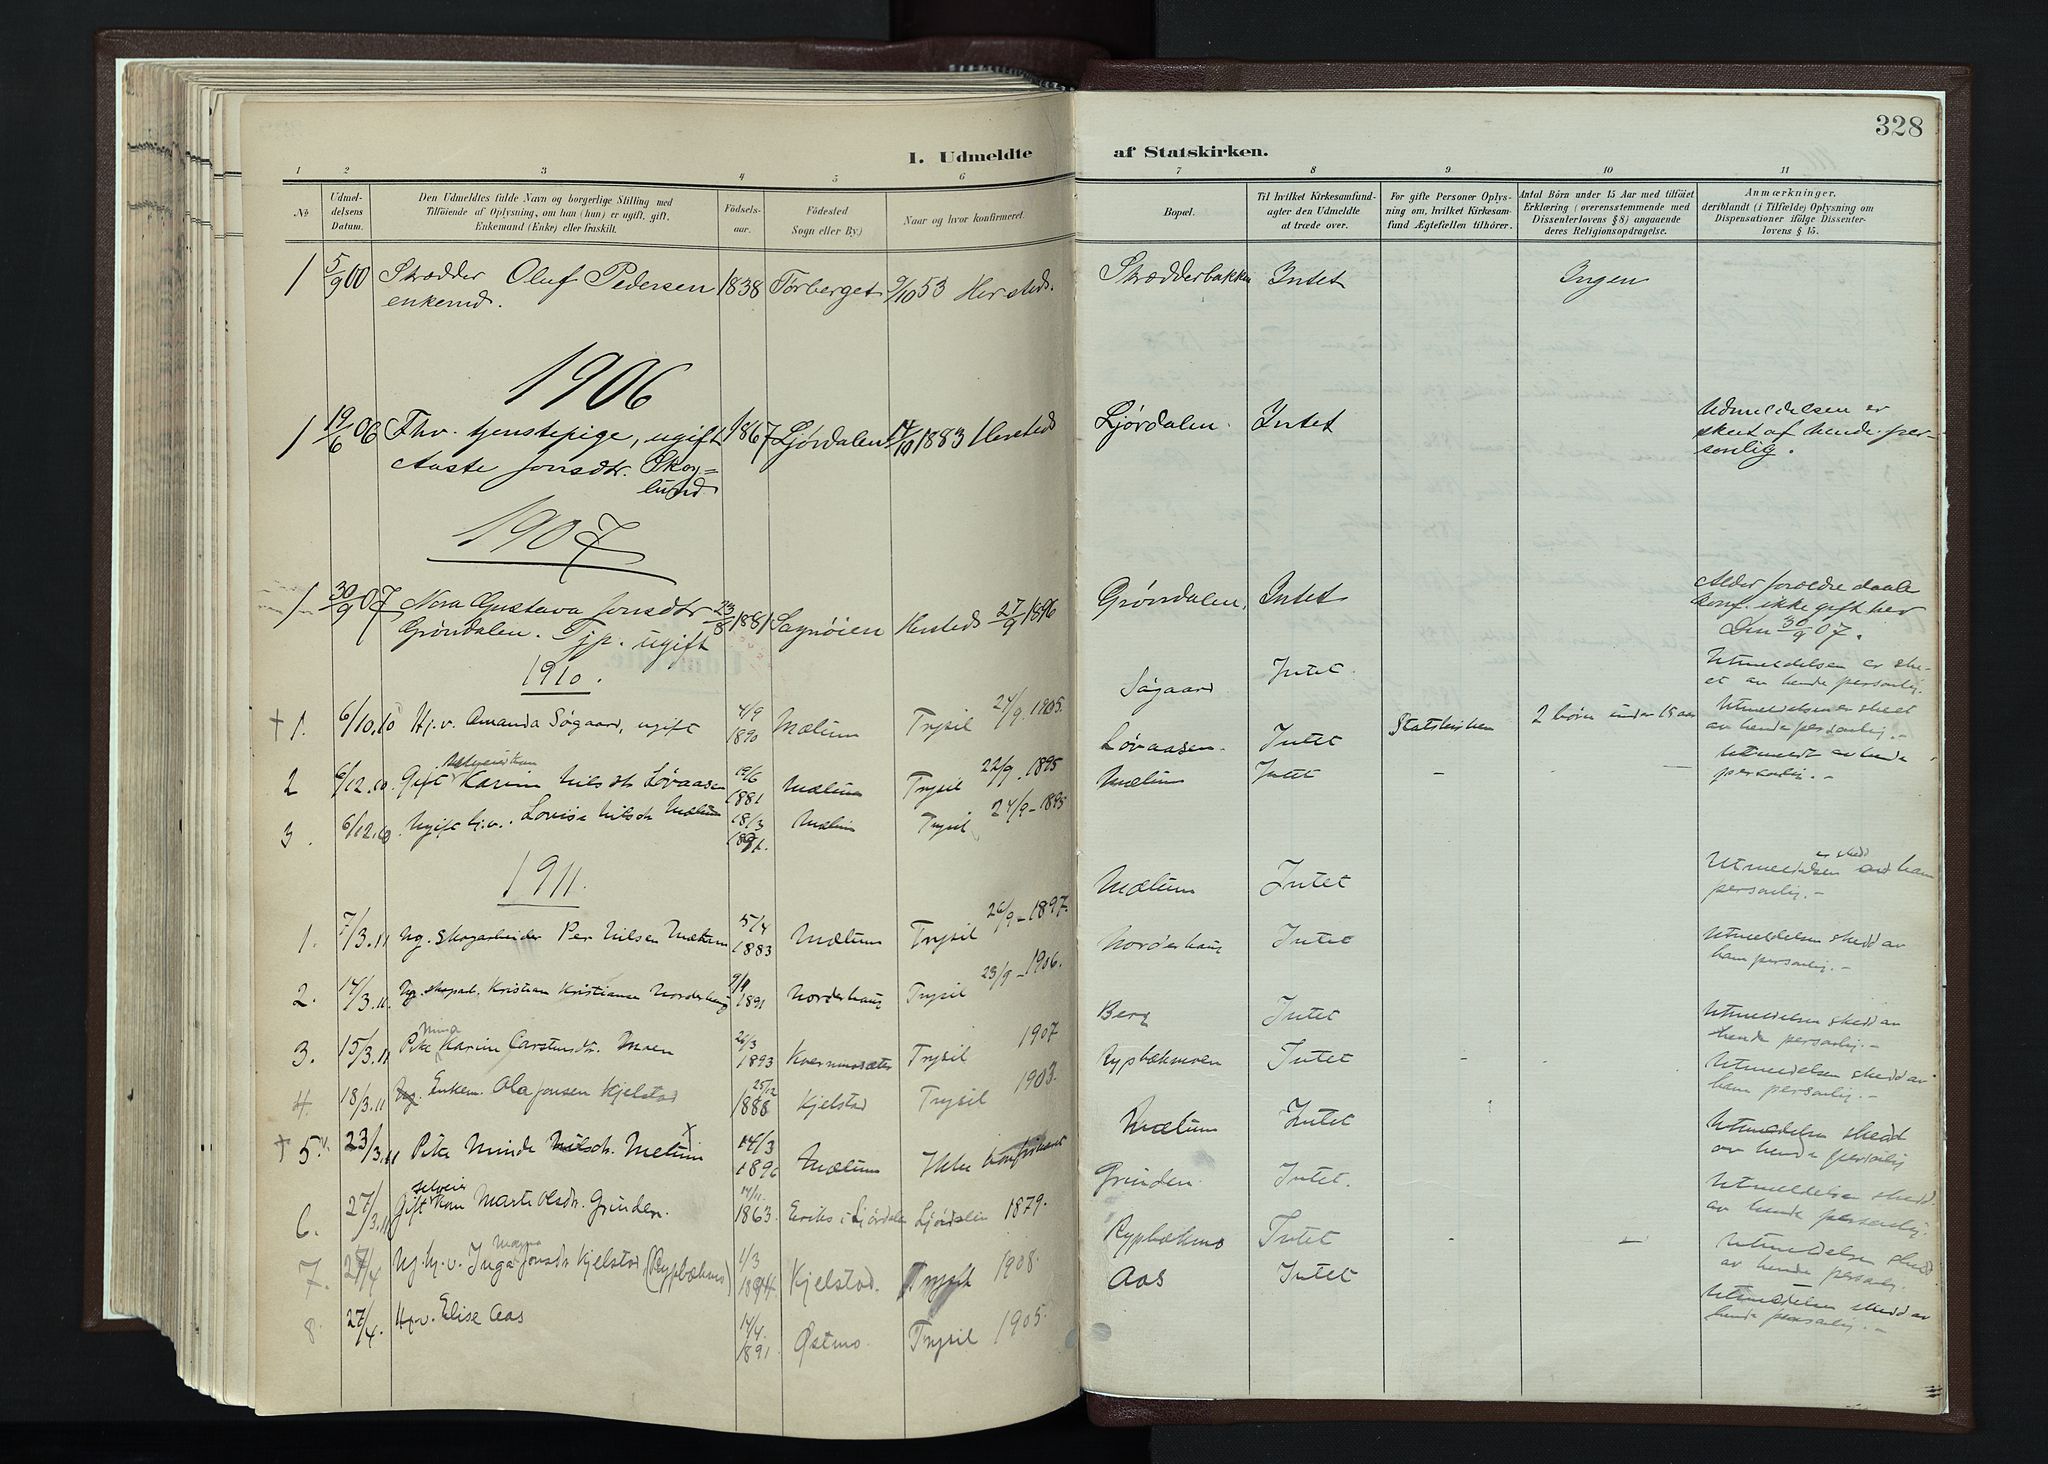 328
1. Udmeldte af Statskirken.
1 2 3 4 5 6 7 8 9 10 11
No
Udmel-
delsens
Datum.
Den Udmeldtes fulde Navn og borgerlige Stilling med
Tilföiende af Oplysning, om han (hun) er ugift, gift,
Enkemand (Enke) eller fraskilt.
Födsels-
aar.
Födested
Sogn eller By.)
Naar og hvor konfirmeret.
Bopæl.
Til hvilket Kirkesamfund-
agter den Udmeldte
at træde over.
For gifte Personer Oplys-
ning om, hvilket Kirkesam-
fund Ægtefællen tilhörer.
Antal Börn under 15 Aar med tilföiet
Erklæring (overensstemmende med
Dissenterlovens § 8) angaaende
deres Religionsopdragelse.
Anmærkninger,
deriblandt (i Tilfælde) Oplysning om
Dispensationer ifölge Dissenter-
lovens § 15.
1 5/9 00 Skrædder Oluf Pedersen 1838 Törberget 9/10 53 Hersteds. Skrædderbakken Intet Ingen
enkemd.
1906
1 19/6 06 Fhv. tjenstepige, ugift 1867 Ljørdalen 14/10 1883 Hersteds Ljørdalen. Intet Udmeldelsen er
Aaste Jonsdtr. Skog- skeet af hende per-
lund sonlig.
1907
1 30/9 07 Nora Gustava Jonsdtr 23/8 1881 Sagnöien Hersteds 27/9 1896 Gröndalen. Intet
Gröndalen. Tjp. ugift
konf. ikke gift her
Den 30/9 07.
1910.
+ 1. 6/10.10 Hj.v. Amanda Søgaard, ugift 4/9 1890 Mælum Trysil 24/9. 1905. Søgaard Intet. Utmeldelsen er ske-
et av hende personlig.
2 6/12.10 Gift Karin Nilsdt Løvaasen 19/6 1881 Mælum Trysil 22/9. 1895 Løvaasen. Intet Statskirken 2 børn under 15 aar Utmeldelsen er skeet
av hende personlig.-
3. 6/12.10 Ugift hj.v. Lovise Nilsdt Mælum 18/3 Mælum Trysil 24/9-1893 Mælum Intet - Utmeldt av hende
personlig. -
1911.
1. 7/3.11 Ug. skogarbeider Per Nilsen Mælum 5/4 1883 Mælum Trysil 26/9-1897. Mælum Intet Utmeldelsen er skedd av ham
personlig.-
2. 14/3.11 Ug. skogarb. Kristian Kristiansen Norderhaug 9/11 1891 Norderhaug Trysil 23/9-1906. Norderhaug Intet Utmeldelsen skedd av
ham personlig.-
3. 15/3.11 Pike Nina Karine Carstensdtr. Moen 26/3 1893 Kvernmosæter Trysil 1907 Berg Intet Utmeldelsen skedd av
hende personlig.-
4. 18/3.11 Ug. Enkem. Ola Jonsen Kjelstad 25/12 1888 Kjelstad Trysil 1903. Rypbækmoen Intet - Utmeldelsen skedd av
ham personlig.-
+ 5. 23/3.11 Pike Minda Nilsdt. Mælum 14/3 1896 Mælum Ikke konfirmeret Mælum Intet Utmeldelsen skedd
av hende personlig
6. 27/3.11 Gift selveier Kone Marte Olsdtr. Grinden. 14/11 1863. Eriks i Ljördalen Ljördalen 1879. Grinden. Intet. Utmeldelsen skedd.
av hende personlig.
7. 27/4 Ug. hj.v. Inga Magna Jonsdt Kjelstad, (Rypbækmo) 1/3 Kjelstad. Trysil 1908. Rypbækmo Intet - - Utmeldelsen skedd
av hende personlig.
8 27/4. Hj.v. Elise Aas 14/4. 1891 Østmo. Trysil 1905. Aas Intet Utmeldelsen skedd av
hende personlig.-